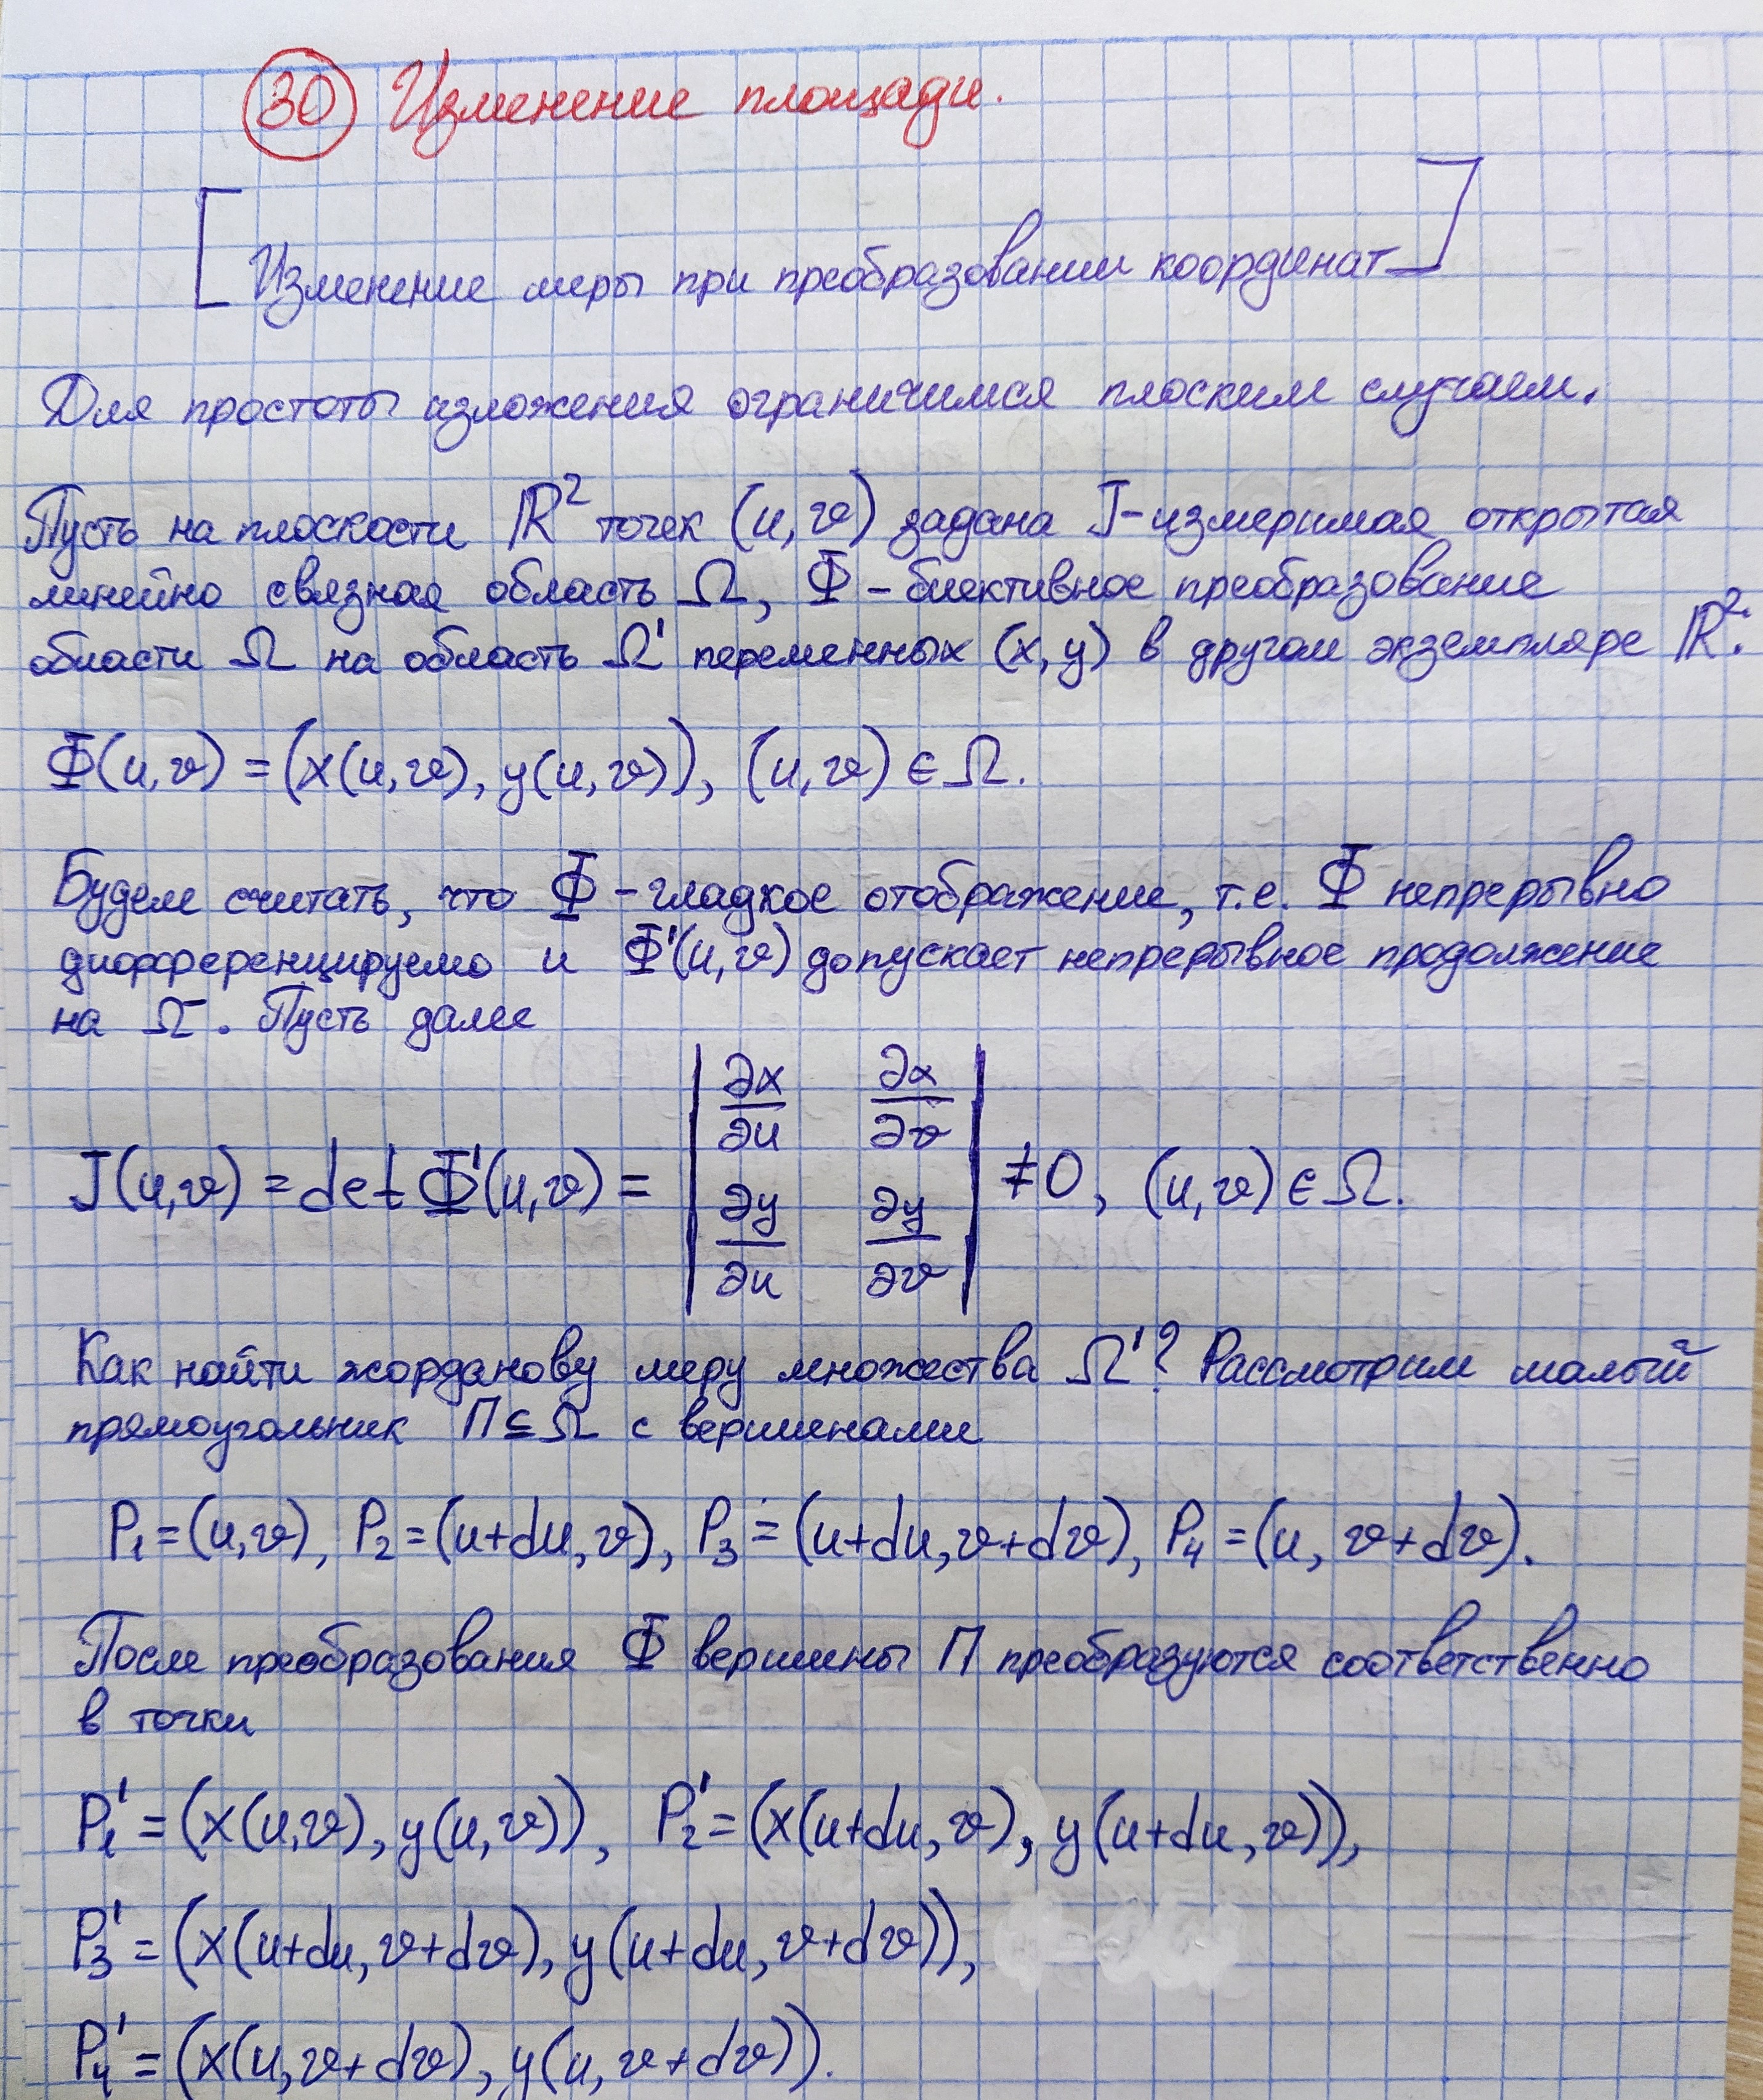 30 Изменение площади.
[Изменение меры при преобразовании координат]
Для простоты изложения ограничимся плоским случаем.
Пусть на плоскости ℝ² точек (u,v) задана J-измеримая открытая
линейно связная область Ω, Φ – биективное преобразование
области Ω на область Ω' переменных (x,y) в другом экземпляре ℝ².
Φ(u,v) = (x(u,v), y(u,v)), (u,v) ∈ Ω.
Будем считать, что Φ – гладкое отображение, т.е. Φ непрерывно
дифференцируемо и Φ'(u,v) допускает непрерывное продолжение
на Ω̄. Пусть далее
J(u,v) = det Φ'(u,v) = | ∂x/∂u ∂x/∂v ; ∂y/∂u ∂y/∂v | ≠ 0, (u,v) ∈ Ω.
Как найти жорданову меру множества Ω'? Рассмотрим малый
прямоугольник П ⊆ Ω с вершинами
P₁ = (u,v), P₂ = (u+du,v), P₃ = (u+du,v+dv), P₄ = (u, v+dv).
После преобразования Φ вершины П преобразуются соответственно
в точки
P₁' = (x(u,v), y(u,v)), P₂' = (x(u+du,v), y(u+du,v)),
P₃' = (x(u+du,v+dv), y(u+du,v+dv)),
P₄' = (x(u,v+dv), y(u,v+dv)).